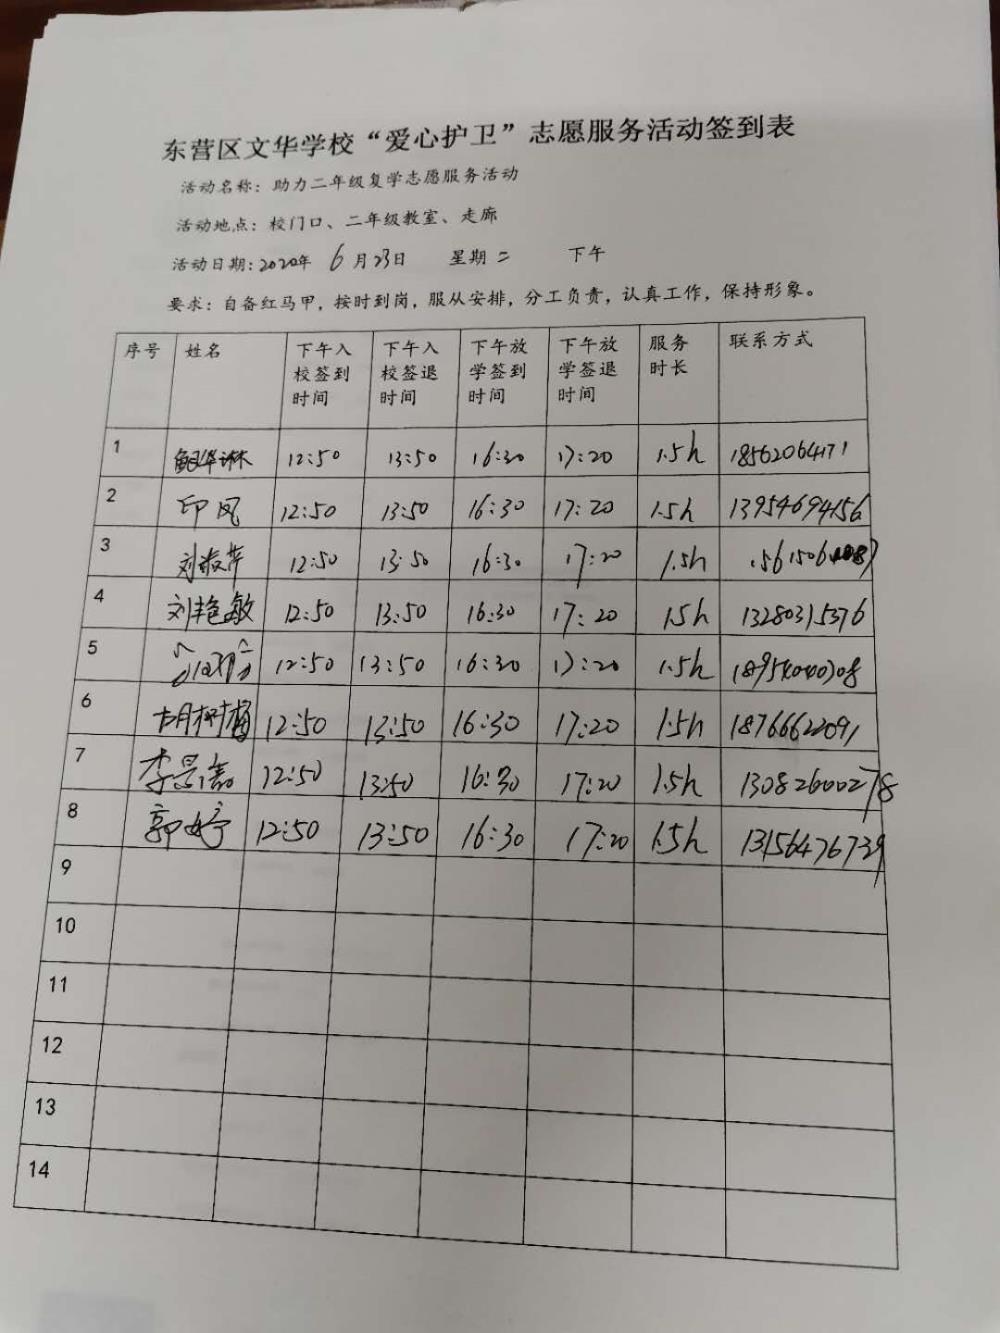 东营区文华学校“爱心护卫”志愿服务活动签到表
活动名称：助力二年级复学志愿服务活动
活动地点：校门口、二年级教室、走廊
活动日期：2020年 6月23日 星期二 下午
要求：自备红马甲，按时到岗，服从安排，分工负责，认真工作，保持形象。
序号 姓名 下午入校签到时间 下午入校签退时间 下午放学签到时间 下午放学签退时间 服务时长 联系方式
1 12:50 13:50 16:30 17:20 1.5h 18562064171
2 印凤 12:50 13:50 16:30 17:20 1.5h 13954694156
3 12:50 13:50 16:30 17:20 1.5h
4 刘艳敏 12:50 13:50 16:30 17:20 1.5h 13280315376
5 12:50 13:50 16:30 17:20 1.5h
6 胡树梅 12:50 13:50 16:30 17:20 1.5h 18766622091
7 12:50 13:50 16:30 17:20 1.5h 13082600278
8 郭婷 12:50 13:50 16:30 17:20 1.5h 13156476739
9
10
11
12
13
14